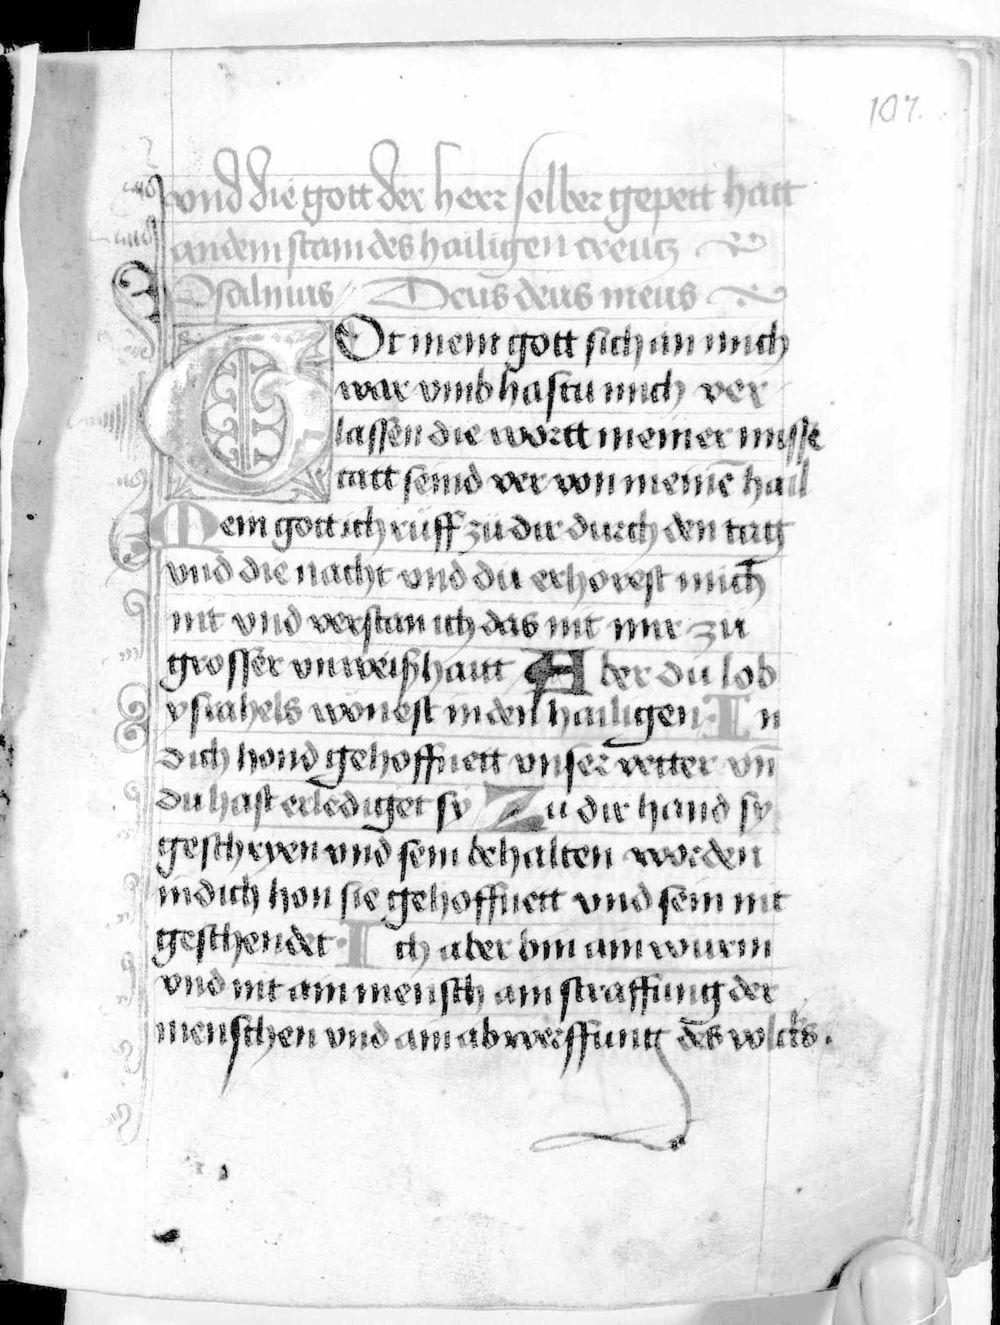 107.
vnd die gott der herr selber gepett hatt
an dem stam des hailigen creutz
Psalmus Deus deus meus
GOt mein gott sich an mich
war vmb hastu mich ver
lassen die wortt meiner misse
tatt seind ver von meinē hail
Mein gott ich rüff zü dir durch den tag
vnd die nacht vnd du erhörest mich
nit vnd verstan ich das nit mir zu
grosser vnweißhaitt Aber du lob
ysrahels wonest in den hailigen · In
dich hond gehoffnett vnser vetter vn̄
du hast erlediget sy Zu dir hand sy
geschryen vnd sein behalten worden
in dich hon sie gehoffnett vnd sein nit
geschendet · Ich aber bin ain wurm
vnd nit ain mensch ain straffung der
menschen vnd ain abwerffung des volcks .